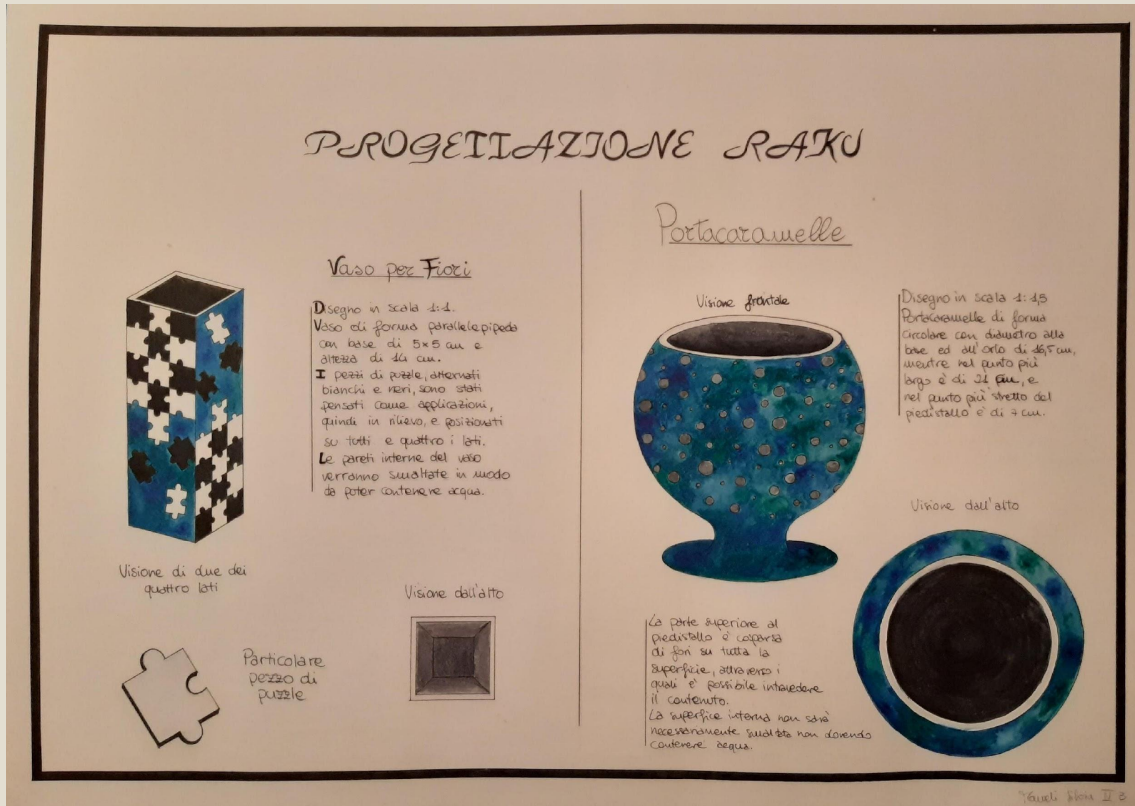 PROGETTAZIONE RAKU
Vaso per Fiori
Disegno in scala 1:1.
Vaso di forma parallelepipeda
con base di 5×5 cm e
altezza di 14 cm.
I pezzi di puzzle, alternati
bianchi e neri, sono stati
pensati come applicazioni,
quindi in rilievo, e posizionati
su tutti e quattro i lati.
Le pareti interne del vaso
verranno smaltate in modo
da poter contenere acqua.
Visione di due dei
quattro lati
Visione dall'alto
Particolare
pezzo di
puzzle
Portacaramelle
Visione frontale
Disegno in scala 1:1,5
Portacaramelle di forma
circolare con diametro alla
base ed all'orlo di 16,5 cm,
mentre nel punto più
largo è di 21 cm, e
nel punto più stretto del
piedistallo è di 7 cm.
Visione dall'alto
La parte superiore al
piedistallo è cosparsa
di fori su tutta la
superficie, attraverso i
quali è possibile intravedere
il contenuto.
La superfice interna non sarà
necessariamente smaltata non dovendo
contenere acqua.